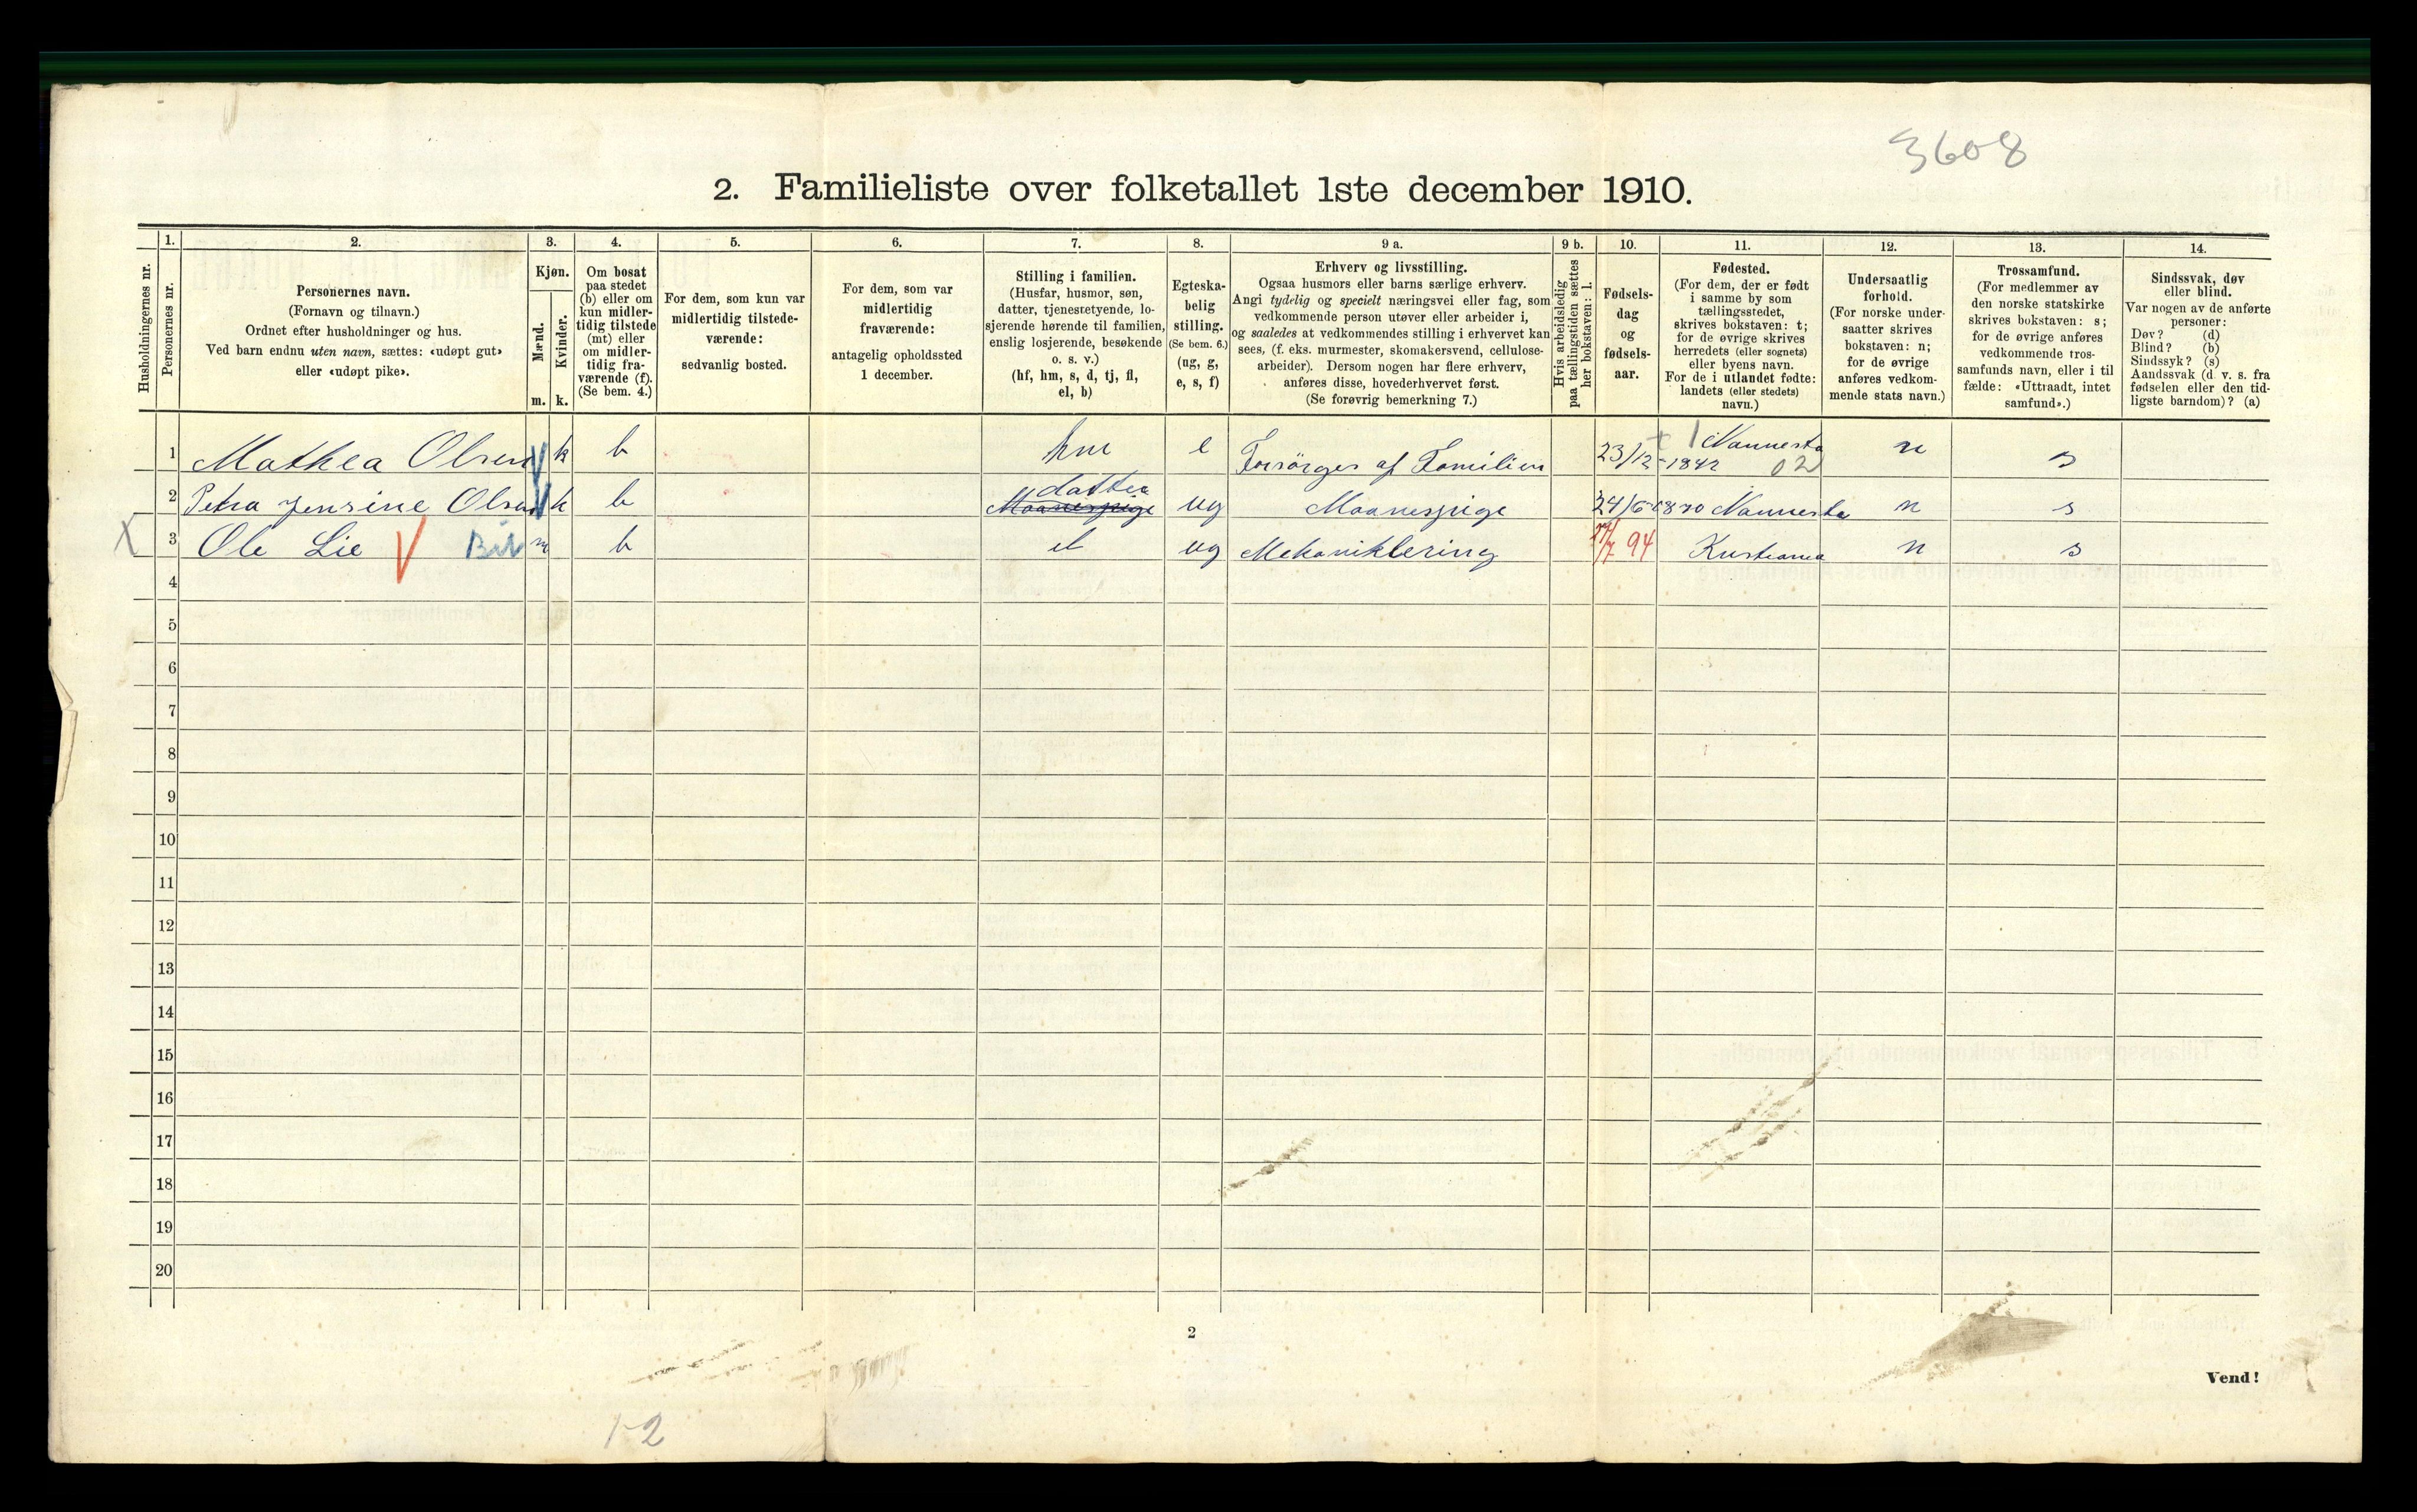 3608
2. Familieliste over folketallet 1ste december 1910.
Husholdningernes nr.
1.
Personernes nr.
2.
Personernes navn.
(Fornavn og tilnavn.)
Ordnet efter husholdninger og hus.
Ved barn endnu uten navn, sættes: «udøpt gut»
eller «udøpt pike».
3.
Kjøn.
Mænd.
m.
Kvinder.
k.
4.
Om bosat
paa stedet
(b) eller om
kun midler-
tidig tilstede
(mt) eller
om midler-
tidig fra-
værende (f).
(Se bem. 4.)
5.
For dem, som kun var
midlertidig tilstede-
værende:
sedvanlig bosted.
6.
For dem, som var
midlertidig
fraværende:
antagelig opholdssted
1 december.
7.
Stilling i familien.
(Husfar, husmor, søn,
datter, tjenestetyende, lo-
sjerende hørende til familien,
enslig losjerende, besøkende
o. s. v.)
(hf, hm, s, d, tj, fl,
el, b)
8.
Egteska-
belig
stilling.
(Se bem. 6.)
(ug, g,
e, s, f)
9 a.
Erhverv og livsstilling.
Ogsaa husmors eller barns særlige erhverv.
Angi tydelig og specielt næringsvei eller fag, som
vedkommende person utøver eller arbeider i,
og saaledes at vedkommendes stilling i erhvervet kan
sees, (f. eks. murmester, skomakersvend, cellulose-
arbeider). Dersom nogen har flere erhverv,
anføres disse, hovederhvervet først.
(Se forøvrig bemerkning 7.)
9 b.
Hvis arbeidsledig
paa tællingstiden sættes
her bokstaven: l.
10.
Fødsels-
dag
og
fødsels-
aar.
11.
Fødested.
(For dem, der er født
i samme by som
tællingsstedet,
skrives bokstaven: t;
for de øvrige skrives
herredets (eller sognets)
eller byens navn.
For de i utlandet fødte:
landets (eller stedets)
navn.)
12.
Undersaatlig
forhold.
(For norske under-
saatter skrives
bokstaven: n;
for de øvrige
anføres vedkom-
mende stats navn.)
13.
Trossamfund.
(For medlemmer av
den norske statskirke
skrives bokstaven: s;
for de øvrige anføres
vedkommende tros-
samfunds navn, eller i til
fælde: «Uttraadt, intet
samfund».)
14.
Sindssvak, døv
eller blind.
Var nogen av de anførte
personer:
Døv? (d)
Blind? (b)
Sindssyk? (s)
Aandssvak (d. v. s. fra
fødselen eller den tid-
ligste barndom)? (a)
1 Mathea Olsen k b hm e Forsörges af Familien 23/12-1842 Nannesta 02 n s
2 Petra Jensine Olsen k b Maanespige datter ug Maanespige 24/6-1870 Nannesta n s
X 3 Ole Lie m b el ug Mekaniklering /7 94 Kristiania n s
4
5
6
7
8
9
10
11
12
13
14
15
16
17
18
19
20
2
Vend!
1-2